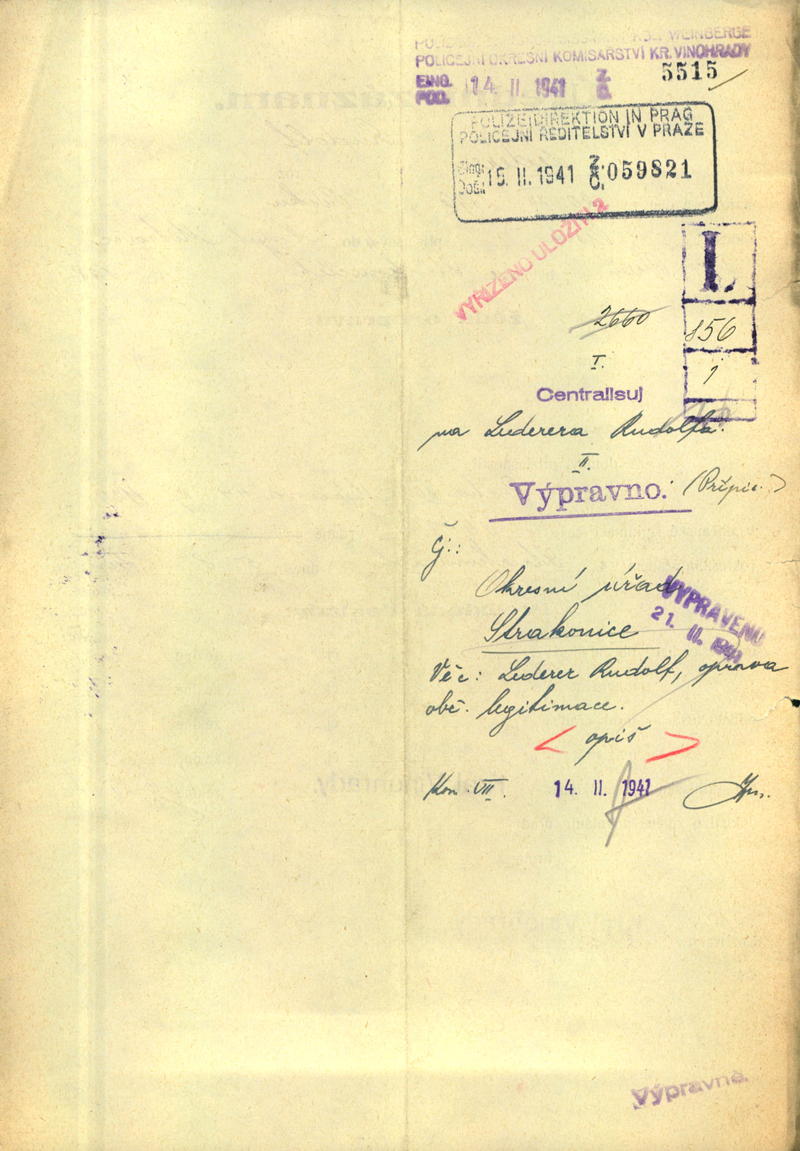 WEINBERGE
POLICEJNÍ OKRESNÍ KOMISAŘSTVÍ KR. VINOHRADY
EING. 14. II. 1941 Z. 5515
POD. Č.
POLIZEIDIREKTION IN PRAG
POLICEJNÍ ŘEDITELSTVÍ V PRAZE
Eing: 15. II. 1941 Z. 059821
Došl: Č.
VYŘÍZENO ULOŽITI 2
L
2660
856
I.
1
Centralisuj
na Lederera Rudolfa.
II.
Výpravno. (Přípis.)
Čj.:
Okresní úřad
VYPRAVENO
21. II. 1941
Strakonice
Věc: Lederer Rudolf, oprava
obč. legitimace.
< opiš >
Kom. VII. 14. II. 1941
Výpravno.